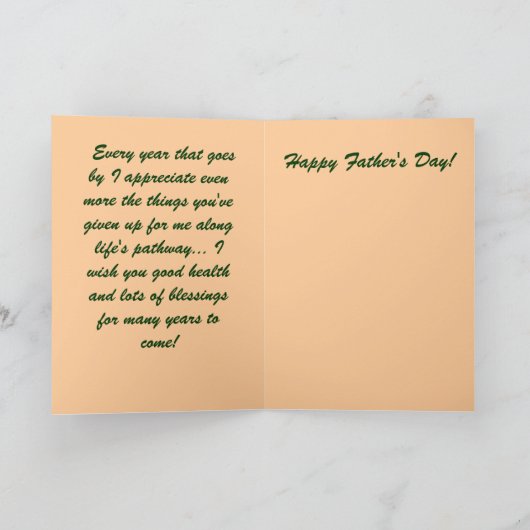 Every year that goes
by I appreciate even
more the things you've
given up for me along
life's pathway... I
wish you good health
and lots of blessings
for many years to
come!
Happy Father's Day!